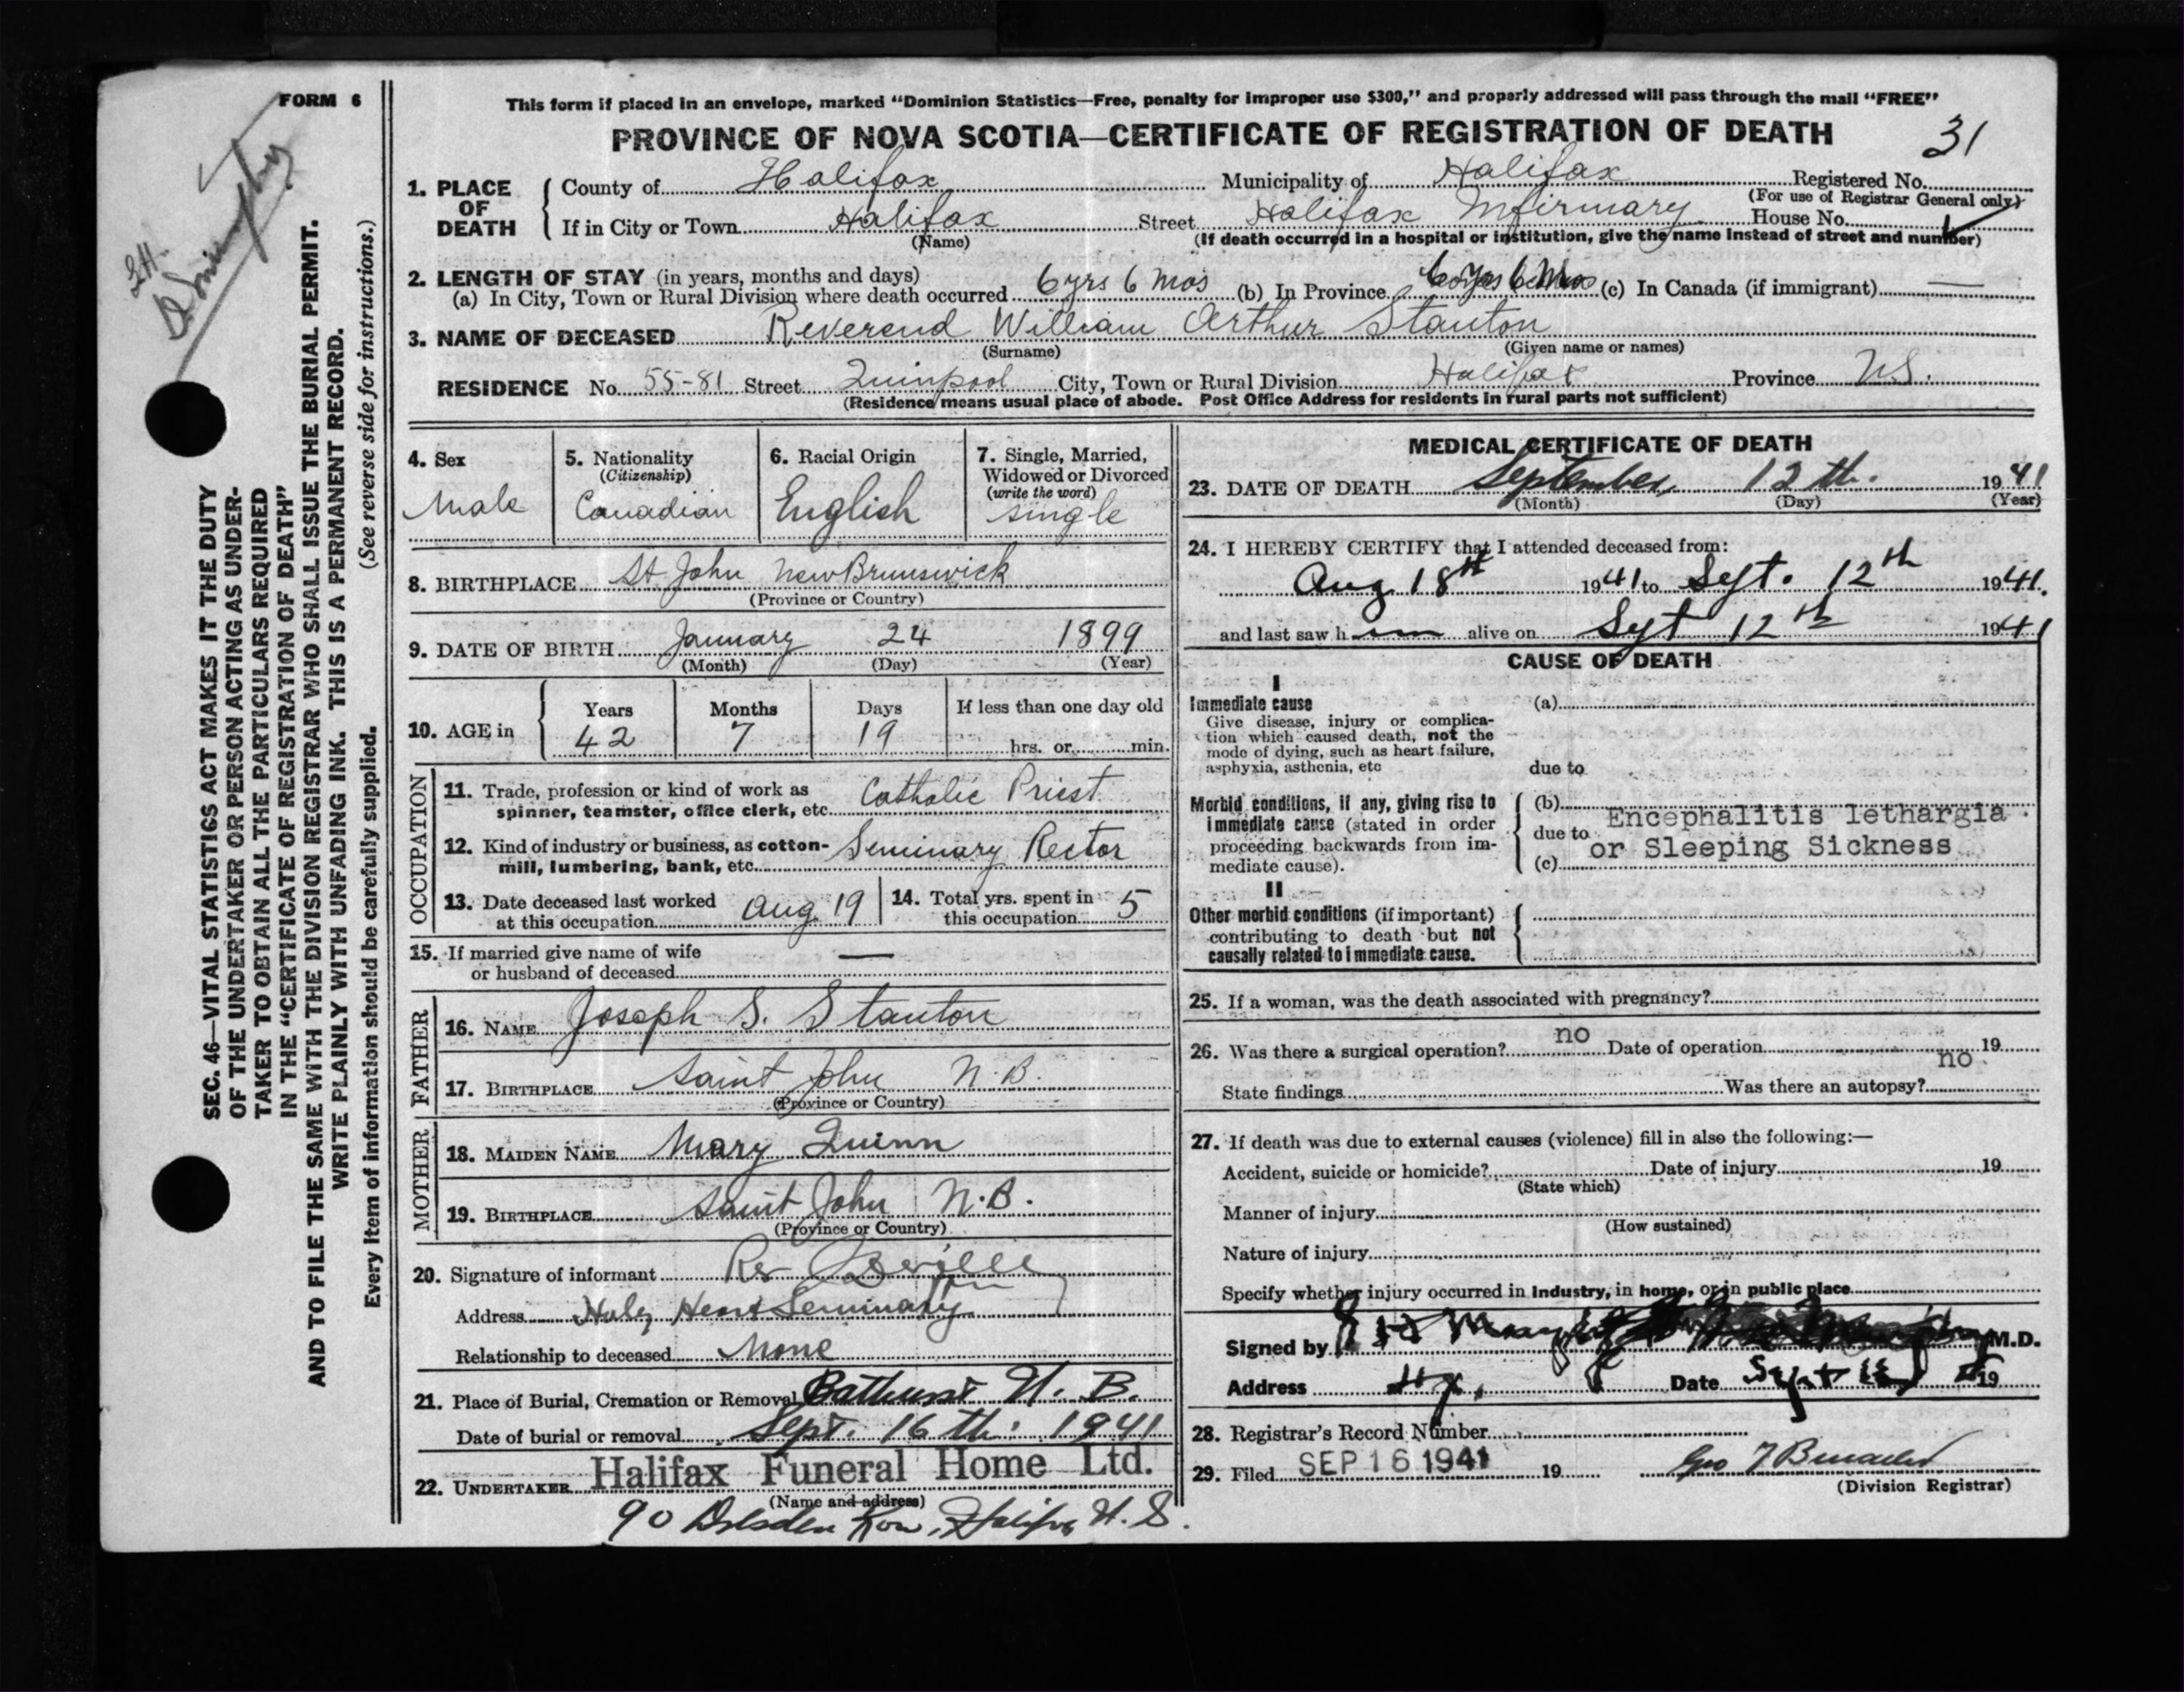 FORM 6
This form if placed in an envelope, marked "Dominion Statistics—Free, penalty for improper use $300," and properly addressed will pass through the mail "FREE"
PROVINCE OF NOVA SCOTIA—CERTIFICATE OF REGISTRATION OF DEATH
31
1. PLACE OF DEATH
County of Halifax Municipality of Halifax Registered No.
(For use of Registrar General only)
If in City or Town Halifax Street Halifax Infirmary House No.
(Name) (If death occurred in a hospital or institution, give the name instead of street and number)
2. LENGTH OF STAY (in years, months and days)
(a) In City, Town or Rural Division where death occurred 6 yrs 6 mos (b) In Province 6 yrs 6 Mos (c) In Canada (if immigrant) —
3. NAME OF DECEASED Reverend William Arthur Stanton
(Surname) (Given name or names)
RESIDENCE No. 55-81 Street Quinpool City, Town or Rural Division Halifax Province N.S.
(Residence means usual place of abode. Post Office Address for residents in rural parts not sufficient)
4. Sex
Male
5. Nationality
(Citizenship)
Canadian
6. Racial Origin
English
7. Single, Married,
Widowed or Divorced
(write the word)
single
8. BIRTHPLACE St John New Brunswick
(Province or Country)
9. DATE OF BIRTH January 24 1899
(Month) (Day) (Year)
10. AGE in
Years Months Days If less than one day old
42 7 19 hrs. or min.
OCCUPATION
11. Trade, profession or kind of work as
spinner, teamster, office clerk, etc. Catholic Priest
12. Kind of industry or business, as cotton-
mill, lumbering, bank, etc. Seminary Rector
13. Date deceased last worked
at this occupation Aug 19
14. Total yrs. spent in
this occupation 5
15. If married give name of wife
or husband of deceased —
FATHER
16. NAME Joseph S. Stanton
17. BIRTHPLACE Saint John N.B.
(Province or Country)
MOTHER
18. MAIDEN NAME Mary Quinn
19. BIRTHPLACE Saint John N.B.
(Province or Country)
20. Signature of informant Rev
Address Holy Heart Seminary
Relationship to deceased None
21. Place of Burial, Cremation or Removal Bathurst N. B.
Date of burial or removal Sept. 16 th. 1941
22. UNDERTAKER Halifax Funeral Home Ltd.
(Name and address)
90 Dresden Row, Halifax N. S.
MEDICAL CERTIFICATE OF DEATH
23. DATE OF DEATH September 12 th. 1941
(Month) (Day) (Year)
24. I HEREBY CERTIFY that I attended deceased from:
Aug 18th 1941 to Sept. 12th 1941.
and last saw h im alive on Sept 12th 1941
CAUSE OF DEATH
I
Immediate cause
Give disease, injury or complica-
tion which caused death, not the
mode of dying, such as heart failure,
asphyxia, asthenia, etc
(a)
due to
Morbid conditions, if any, giving rise to
immediate cause (stated in order
proceeding backwards from im-
mediate cause).
(b) Encephalitis lethargia
due to or Sleeping Sickness
(c)
II
Other morbid conditions (if important)
contributing to death but not
causally related to immediate cause.
25. If a woman, was the death associated with pregnancy?
26. Was there a surgical operation? no Date of operation 19
State findings Was there an autopsy? no
27. If death was due to external causes (violence) fill in also the following:—
Accident, suicide or homicide? Date of injury 19
(State which)
Manner of injury
(How sustained)
Nature of injury
Specify whether injury occurred in industry, in home, or in public place
Signed by M.D.
Address Hfx. Date Sept 19
28. Registrar's Record Number
29. Filed SEP 16 1941 19
(Division Registrar)
SEC. 46—VITAL STATISTICS ACT MAKES IT THE DUTY
OF THE UNDERTAKER OR PERSON ACTING AS UNDER-
TAKER TO OBTAIN ALL THE PARTICULARS REQUIRED
IN THE "CERTIFICATE OF REGISTRATION OF DEATH"
AND TO FILE THE SAME WITH THE DIVISION REGISTRAR WHO SHALL ISSUE THE BURIAL PERMIT.
WRITE PLAINLY WITH UNFADING INK. THIS IS A PERMANENT RECORD.
Every item of information should be carefully supplied. (See reverse side for instructions.)